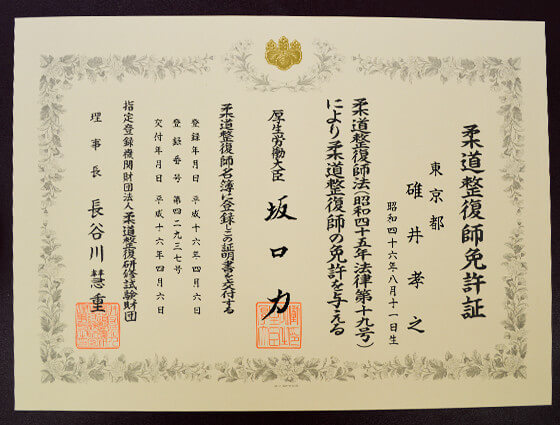 柔道整復師免許証
東京都
碓井孝之
昭和四十六年八月十一日生
柔道整復師法(昭和四十五年法律第十九号)
により柔道整復師の免許を与える
厚生労働大臣 坂口力
柔道整復師名簿に登録しこの証明書を交付する
登録年月日 平成十六年四月六日
登録番号 第四二九三七号
交付年月日 平成十六年四月六日
指定登録機関財団法人柔道整復研修試験財団
理事長 長谷川慧重